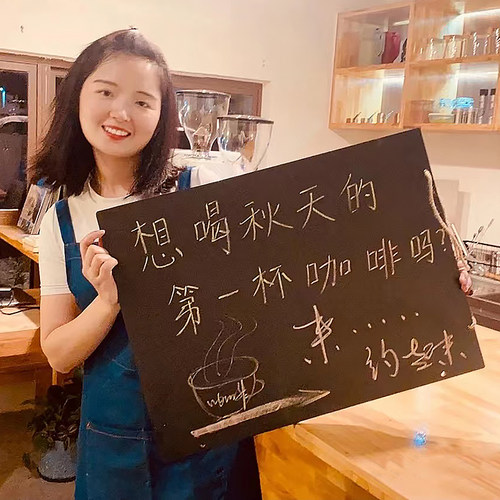 想喝秋天的
第一杯咖啡吗?
来......
约起来